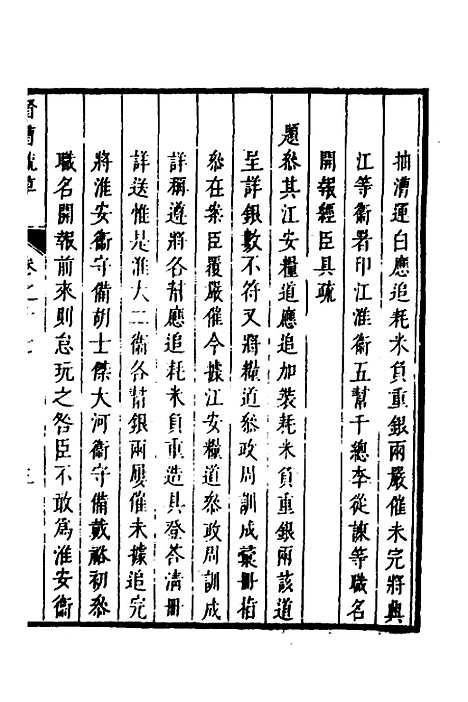 抽漕運白應追耗米負重銀兩嚴催未完將興
江等衛署印江淮衛五幫千總李從諫等職名
開報經臣具疏
題叅其江安糧道應追加裝耗米負重銀兩該道
呈詳銀數不符又將糧道叅政周訓成彙冊指
叅在案臣覆嚴催今據江安糧道叅政周訓成
詳稱遵將各幫應追耗米負重造具登荅清冊
詳送惟是淮大二衛各幫銀兩屢催未據追完
將淮安衛守備胡士傑大河衛守備戴裕初叅
職名開報前來則怠玩之咎臣不敢爲淮安衛
督漕疏草
卷之十七
三